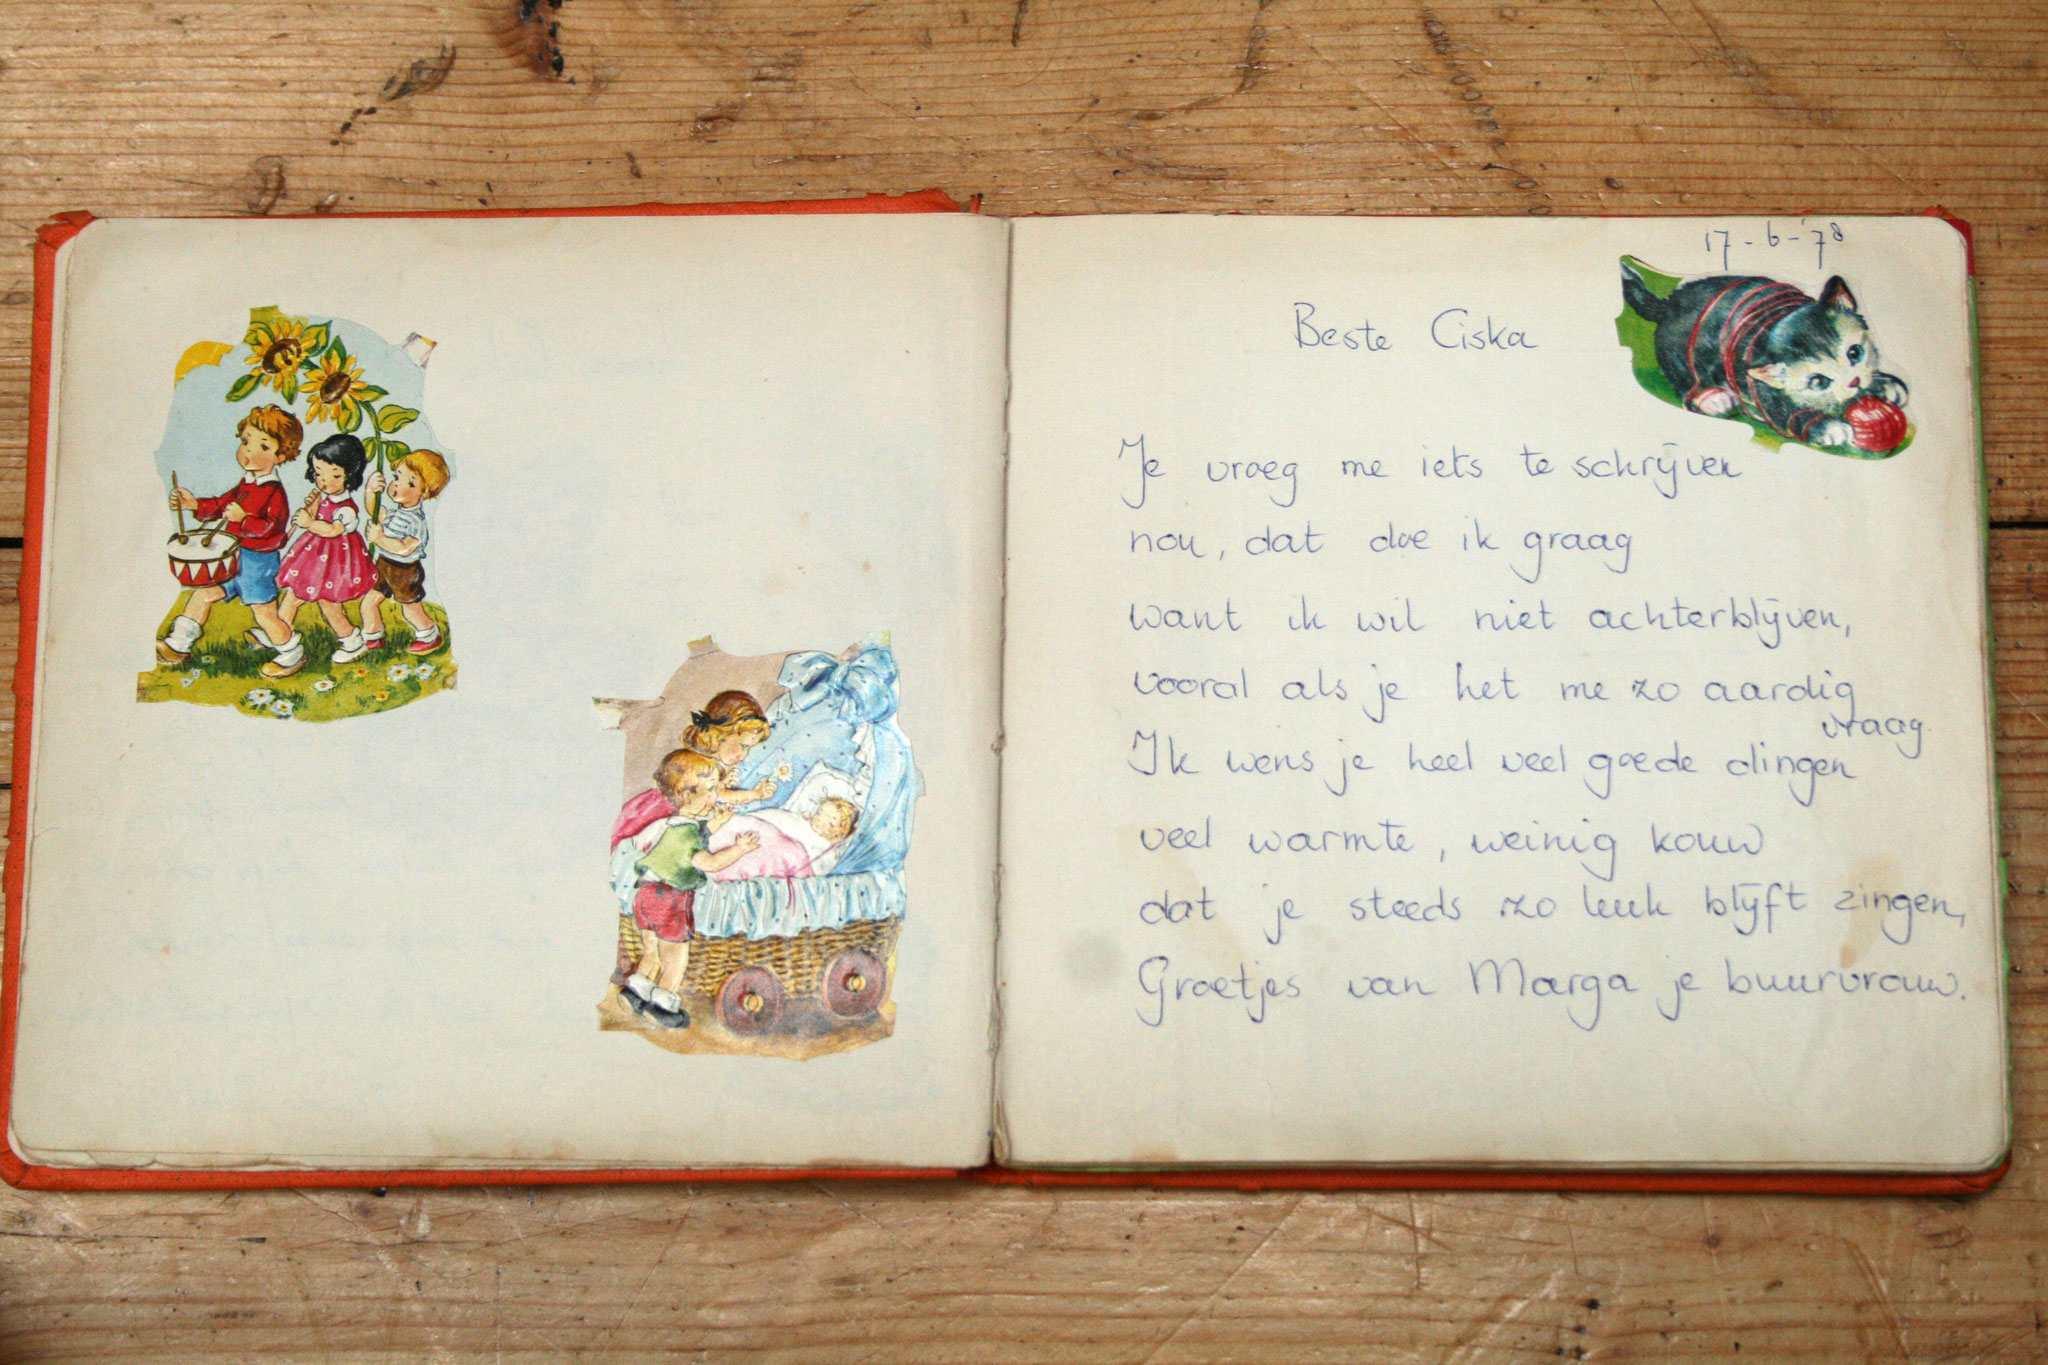 17-6-'78
Beste Ciska
Je vroeg me iets te schrijven
nou, dat doe ik graag
want ik wil niet achterblijven,
vooral als je het me zo aardig
vraag
Ik wens je heel veel goede dingen
veel warmte, weinig kouw
dat je steeds zo leuk blijft zingen,
Groetjes van Marga je buurvrouw.